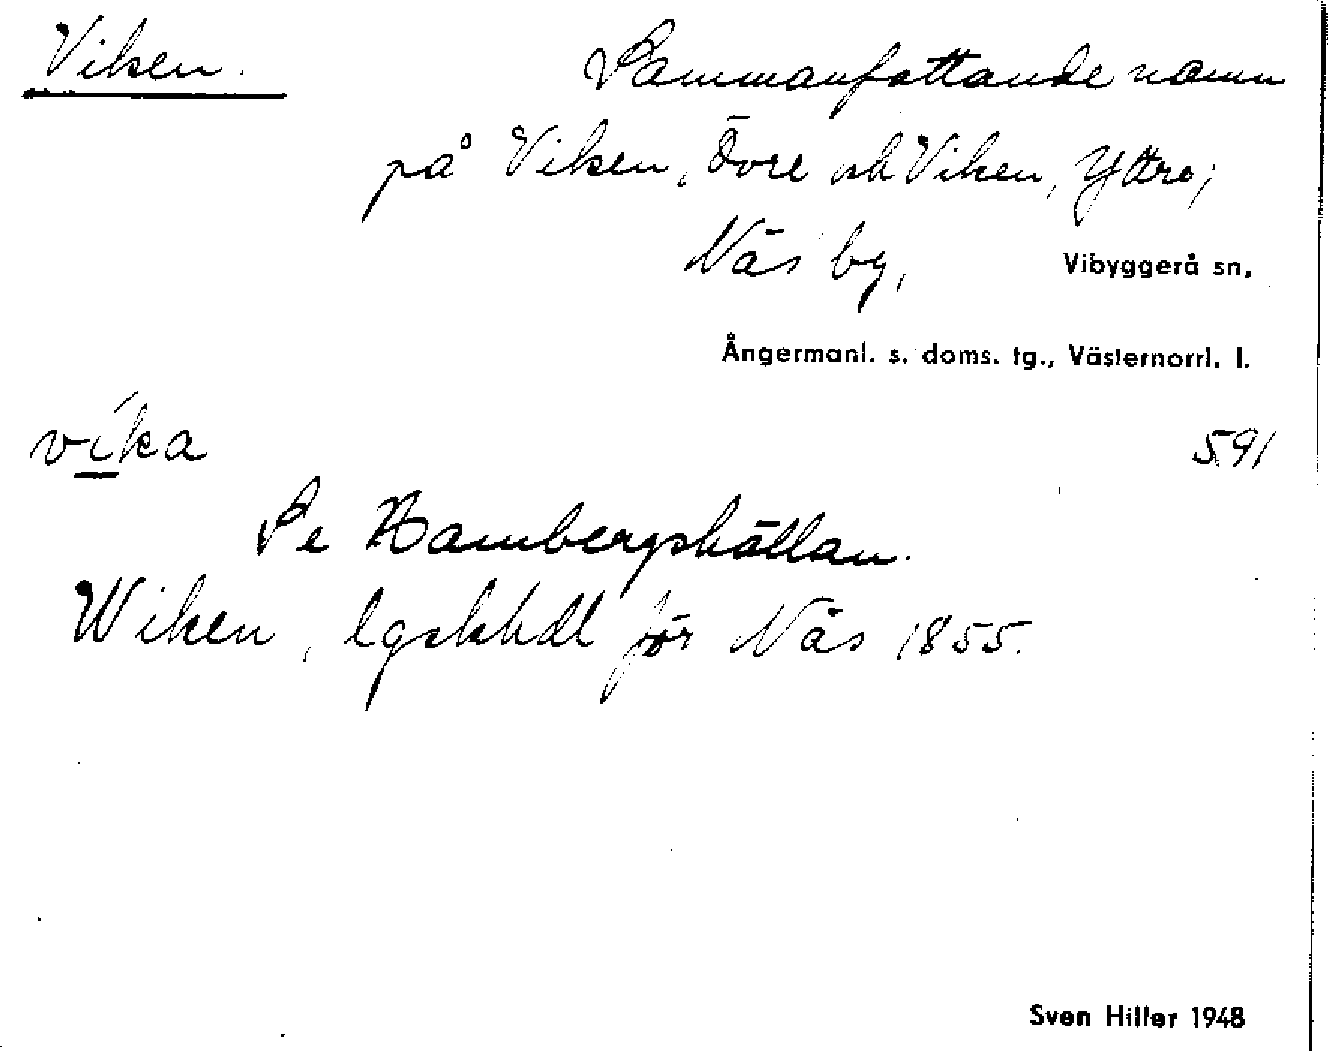 Viken. Sammanfattande namn
på Viken, Övre och Viken, Yttre;
Näs by, Vibyggerå sn,
Ångermanl. s. doms. tg., Västernorrl. l.
víka 591
Se Hambergshällan.
Wiken, lgskhdl för Näs 1855.
Sven Hiller 1948